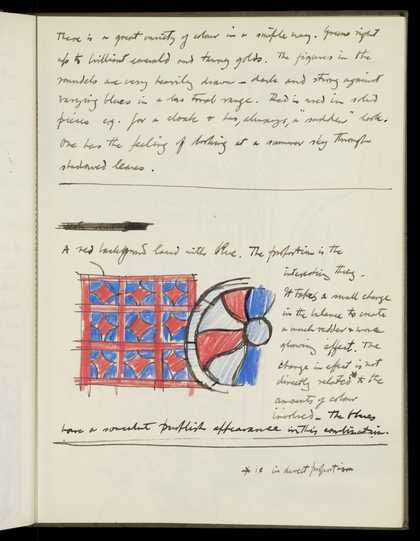 There is a great variety of colour in a simple way. Greens right
up to brilliant emerald and tawny golds. The figures in the
roundels are very heavily drawn – dark and strong against
varying blues in a low tonal range. Red is used in solid
pieces eg. for a cloak & has, always, a "sudden" look.
One has the feeling of looking at a summer sky through
shadowed leaves.
A red background laced with blue. The proportion is the
interesting thing.
It takes a small change
in the balance to create
a much redder & more
glowing effect. The
change in effect is not
directly related* to the
amounts of colour
involved – The blues
have a somewhat purplish appearance in this combination.
* ie in direct proportion